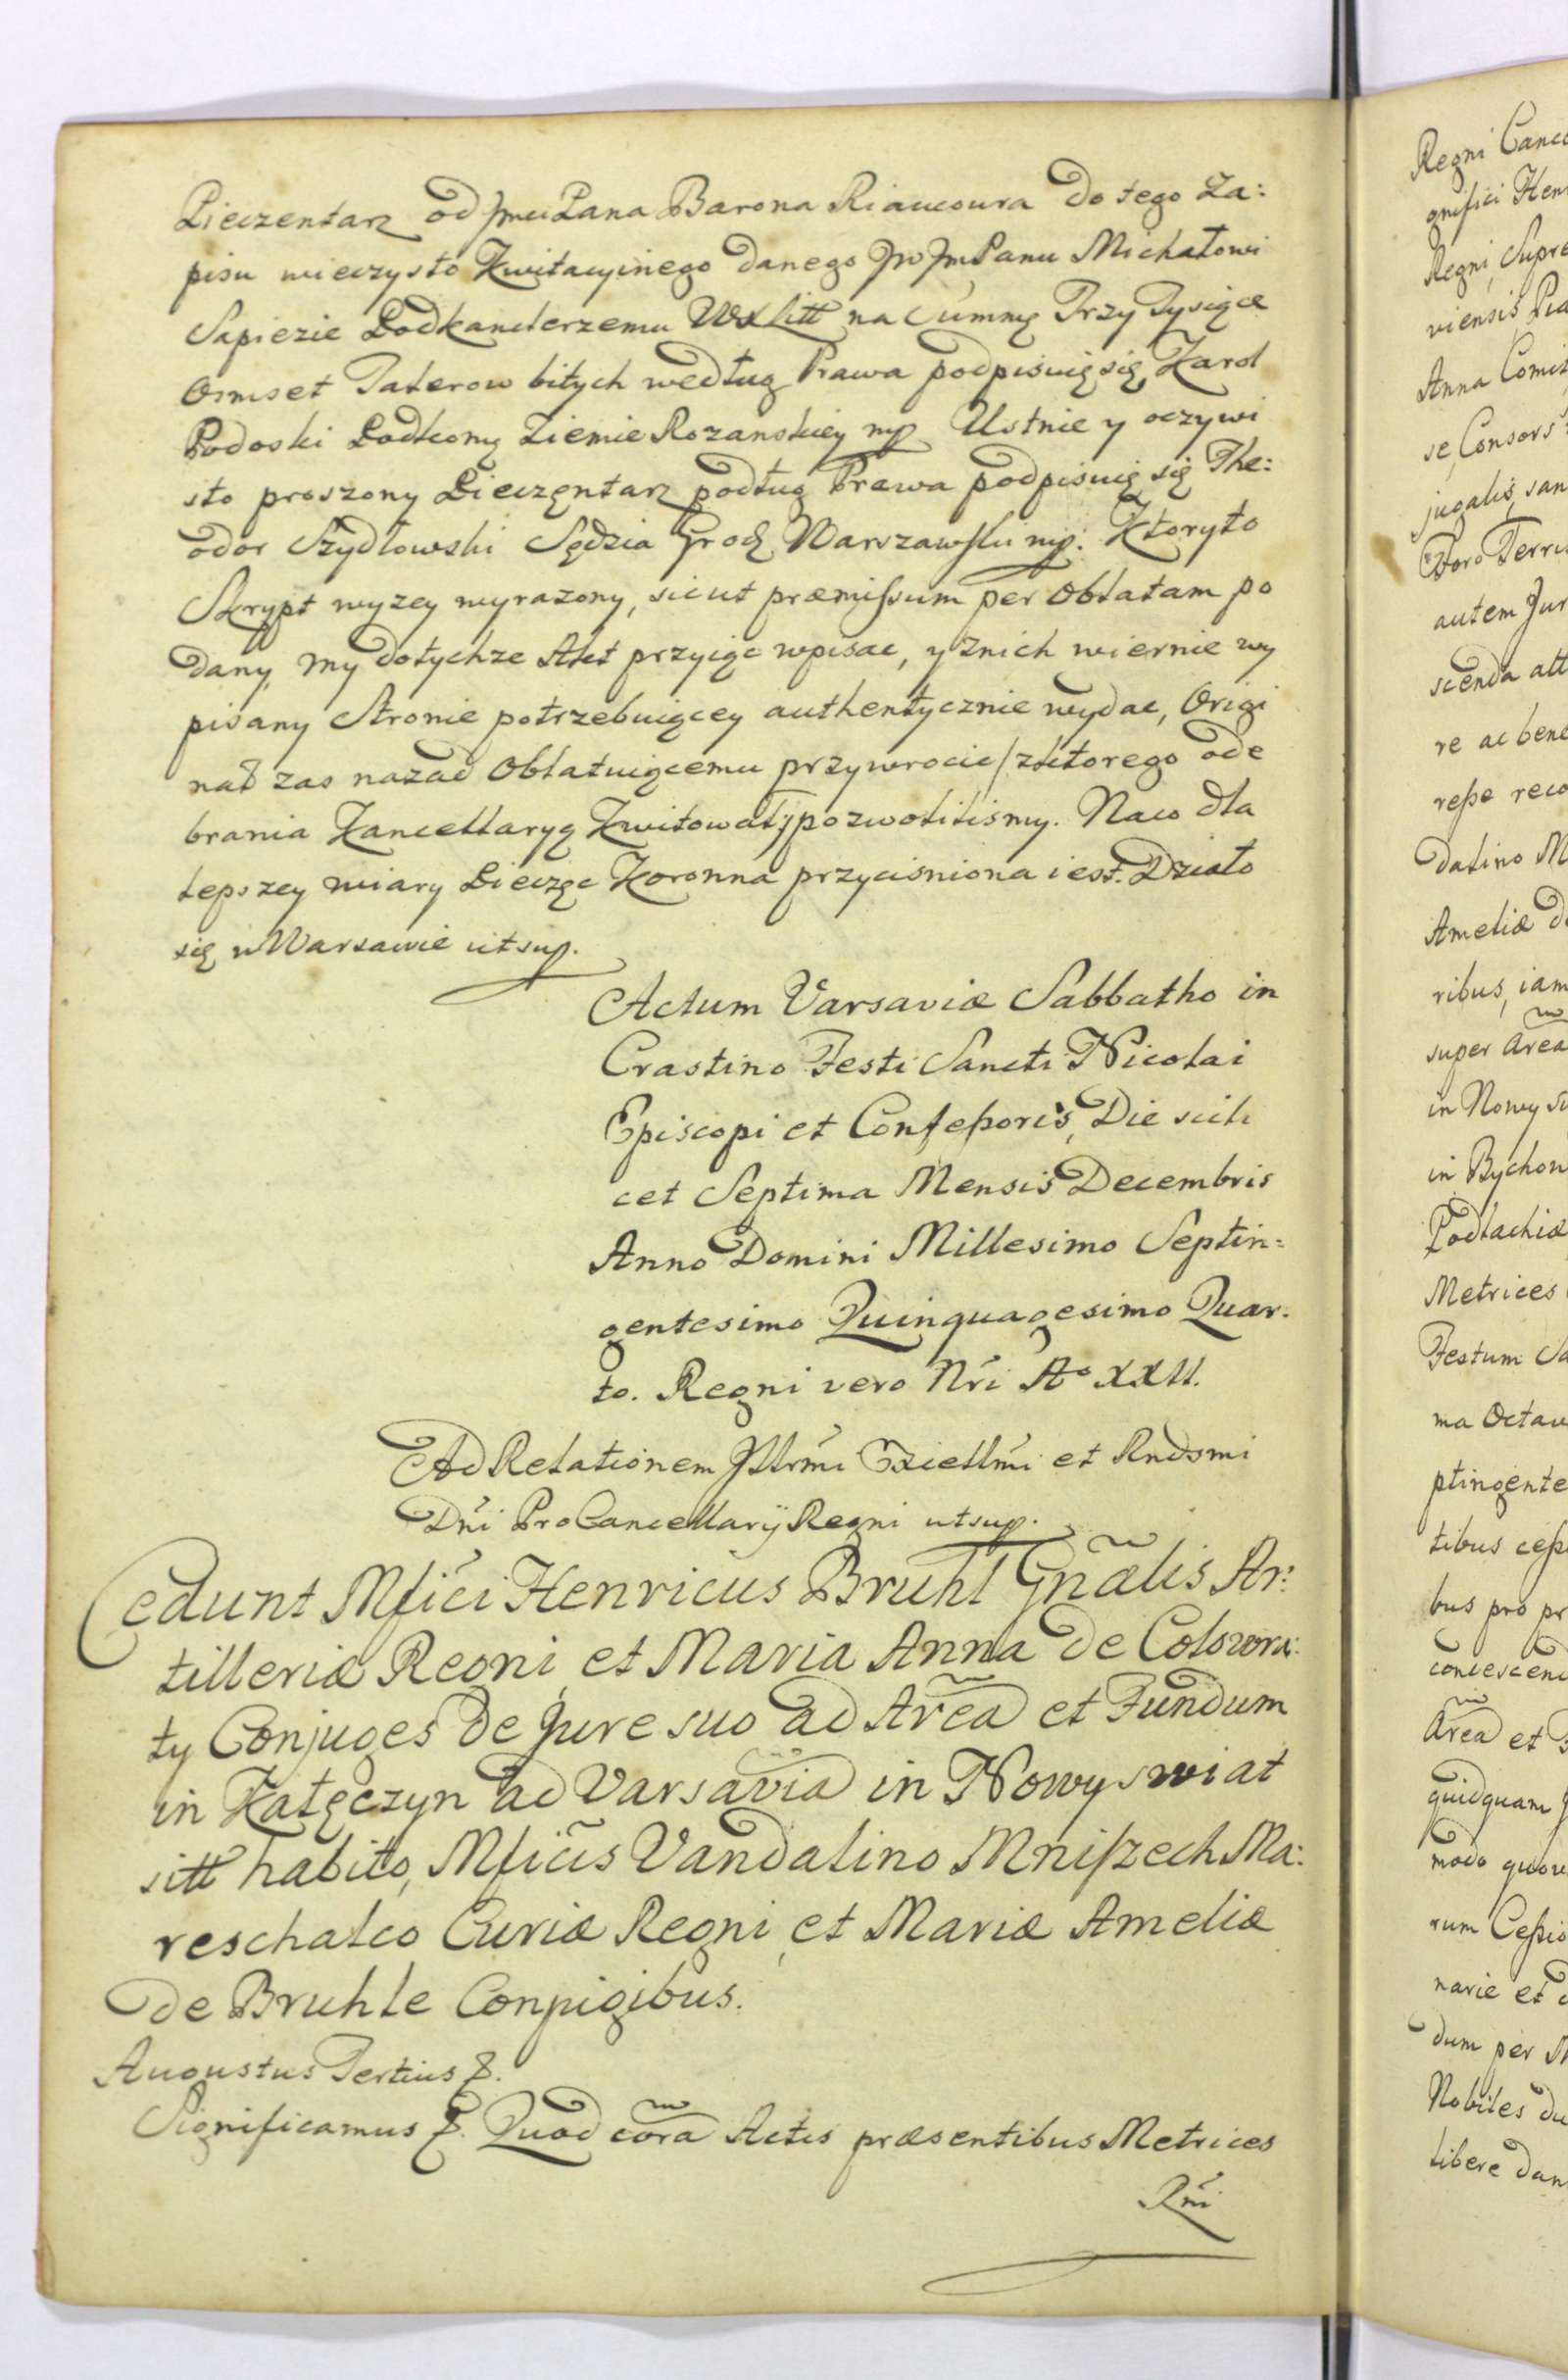 Pieczentarz od Jmci Pana Barona Riaucoura do tego Za:
pisu wieczysto Kwitacyinego danego JW Jm Panu Michałowi
Sapiezie Podkanclerzemu WXLitt na Summę Trzy Tysiące
Osmset Talerow bitych według Prawa podpisuię się, Karol
Podoski Podkomę Ziemie Rozanskiey mp. Ustnie y oczywi
sto proszony Pieczętarz podług Prawa podpisuię się The:
odor Szydłowski Sędzia Grodz Warszawski mp. Ktoryto
Skrypt wyzey wyrazony, sicut præmissum per Oblatam po
dany, my dotychze Akt przyiąc wpisac, y znich wiernie wy
pisany Stronie potrzebuiącey authentycznie wydac, Origi
nał zas nazad Oblatuiącemu przywrocic /zktorego ode
brania Kancellaryą Kwitował/ pozwolilismy. Naco dla
lepszey wiary Pieczęc Koronna przyciśniona iest. Działo
się w Warsawie ut sup.
Actum Varsaviæ Sabbatho in
Crastino Festi Sancti Nicolai
Episcopi et Confessoris, Die scili
cet Septima Mensis Decembris
Anno Domini Millesimo Septin=
gentesimo Quinquagesimo Quar-
to. Regni vero Nri A° XXII.
Ad Relationem Jllrmi Excellmi et Rndsmi
Dni ProCancellarij Regni ut sup.
Cedunt Mfici Henricus Bruhl Gnalis Ar:
tilleriæ Regni, et Maria Anna de Colowra:
ty Conjuges de Jure suo ad Area et Fundum
in Kałęczyn ad Varsavia in Nowy swiat
sitt habito, Mficis Vandalino Mniszech Ma:
reschalco Curiæ Regni, et Mariæ Ameliæ
de Bruhle Conjugibus.
Augustus Tertius &.
Significamus &. Quod cora Actis præsentibus Metrices
Rni
Regni Canc
gnifici Hen
Regni, Supre
viensis Pia
Anna Comi
se, Consors
jugalis, san
Foro Terri
autem Jur
scenda att
re ac bene
resse reco
dalino M
Ameliæ d
ribus, iam
super Area
in Nowy s
in Bychow
Podlachiæ
Metrices
Festum Sa
ma Octav
ptingente
tibus cess
bus pro pr
condescend
Area et F
quidquam J
modo quov
rum Cessio
narie et
dum per M
Nobiles du
libere dan